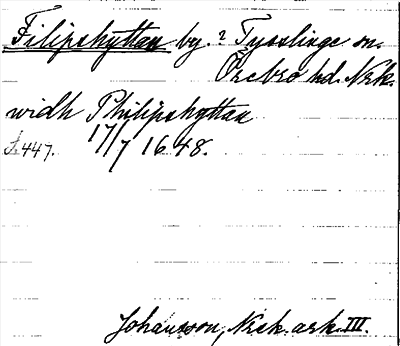 Filipshyttan by. i Tysslinge sn.
Örebro hd. Nrk.
widh Philipshyttan
17/7 1648.
447.
Johansson, Nrk. ark. III.